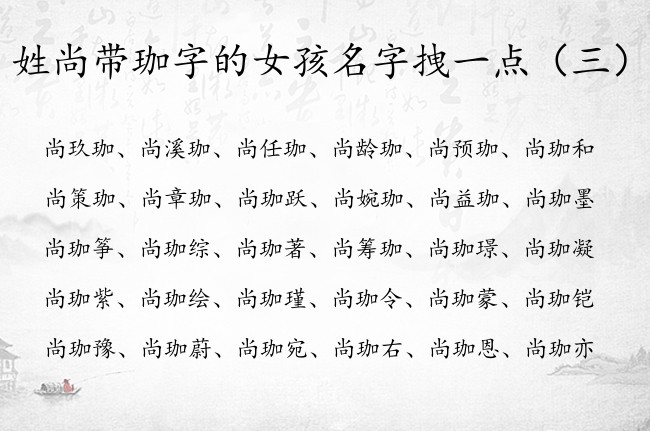 姓尚带珈字的女孩名字拽一点（三）
尚玖珈、尚溪珈、尚任珈、尚龄珈、尚预珈、尚珈和
尚策珈、尚章珈、尚珈跃、尚婉珈、尚益珈、尚珈墨
尚珈筝、尚珈综、尚珈著、尚筹珈、尚珈璟、尚珈凝
尚珈紫、尚珈绘、尚珈瑾、尚珈令、尚珈蒙、尚珈铠
尚珈豫、尚珈蔚、尚珈宛、尚珈右、尚珈恩、尚珈亦